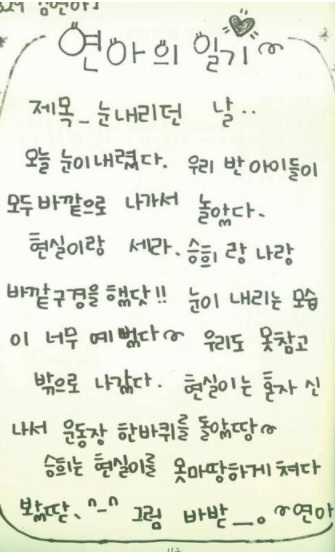 연아의 일기~
제목_눈내리던 날..
오늘 눈이내렸다. 우리 반아이들이
모두 바깥으로 나가서 놀았다.
현실이랑 세라. 승희랑 나랑
바깥구경을 했닷!! 눈이 내리는 모습
이 너무 예뻤다~ 우리도 못참고
밖으로 나갔다. 현실이는 혼자 신
나서 운동장 한바퀴를 돌았땅~
승희는 현실이를 못마땅하게 쳐다
봤딴. ^-^ 그럼 바반__。~연아